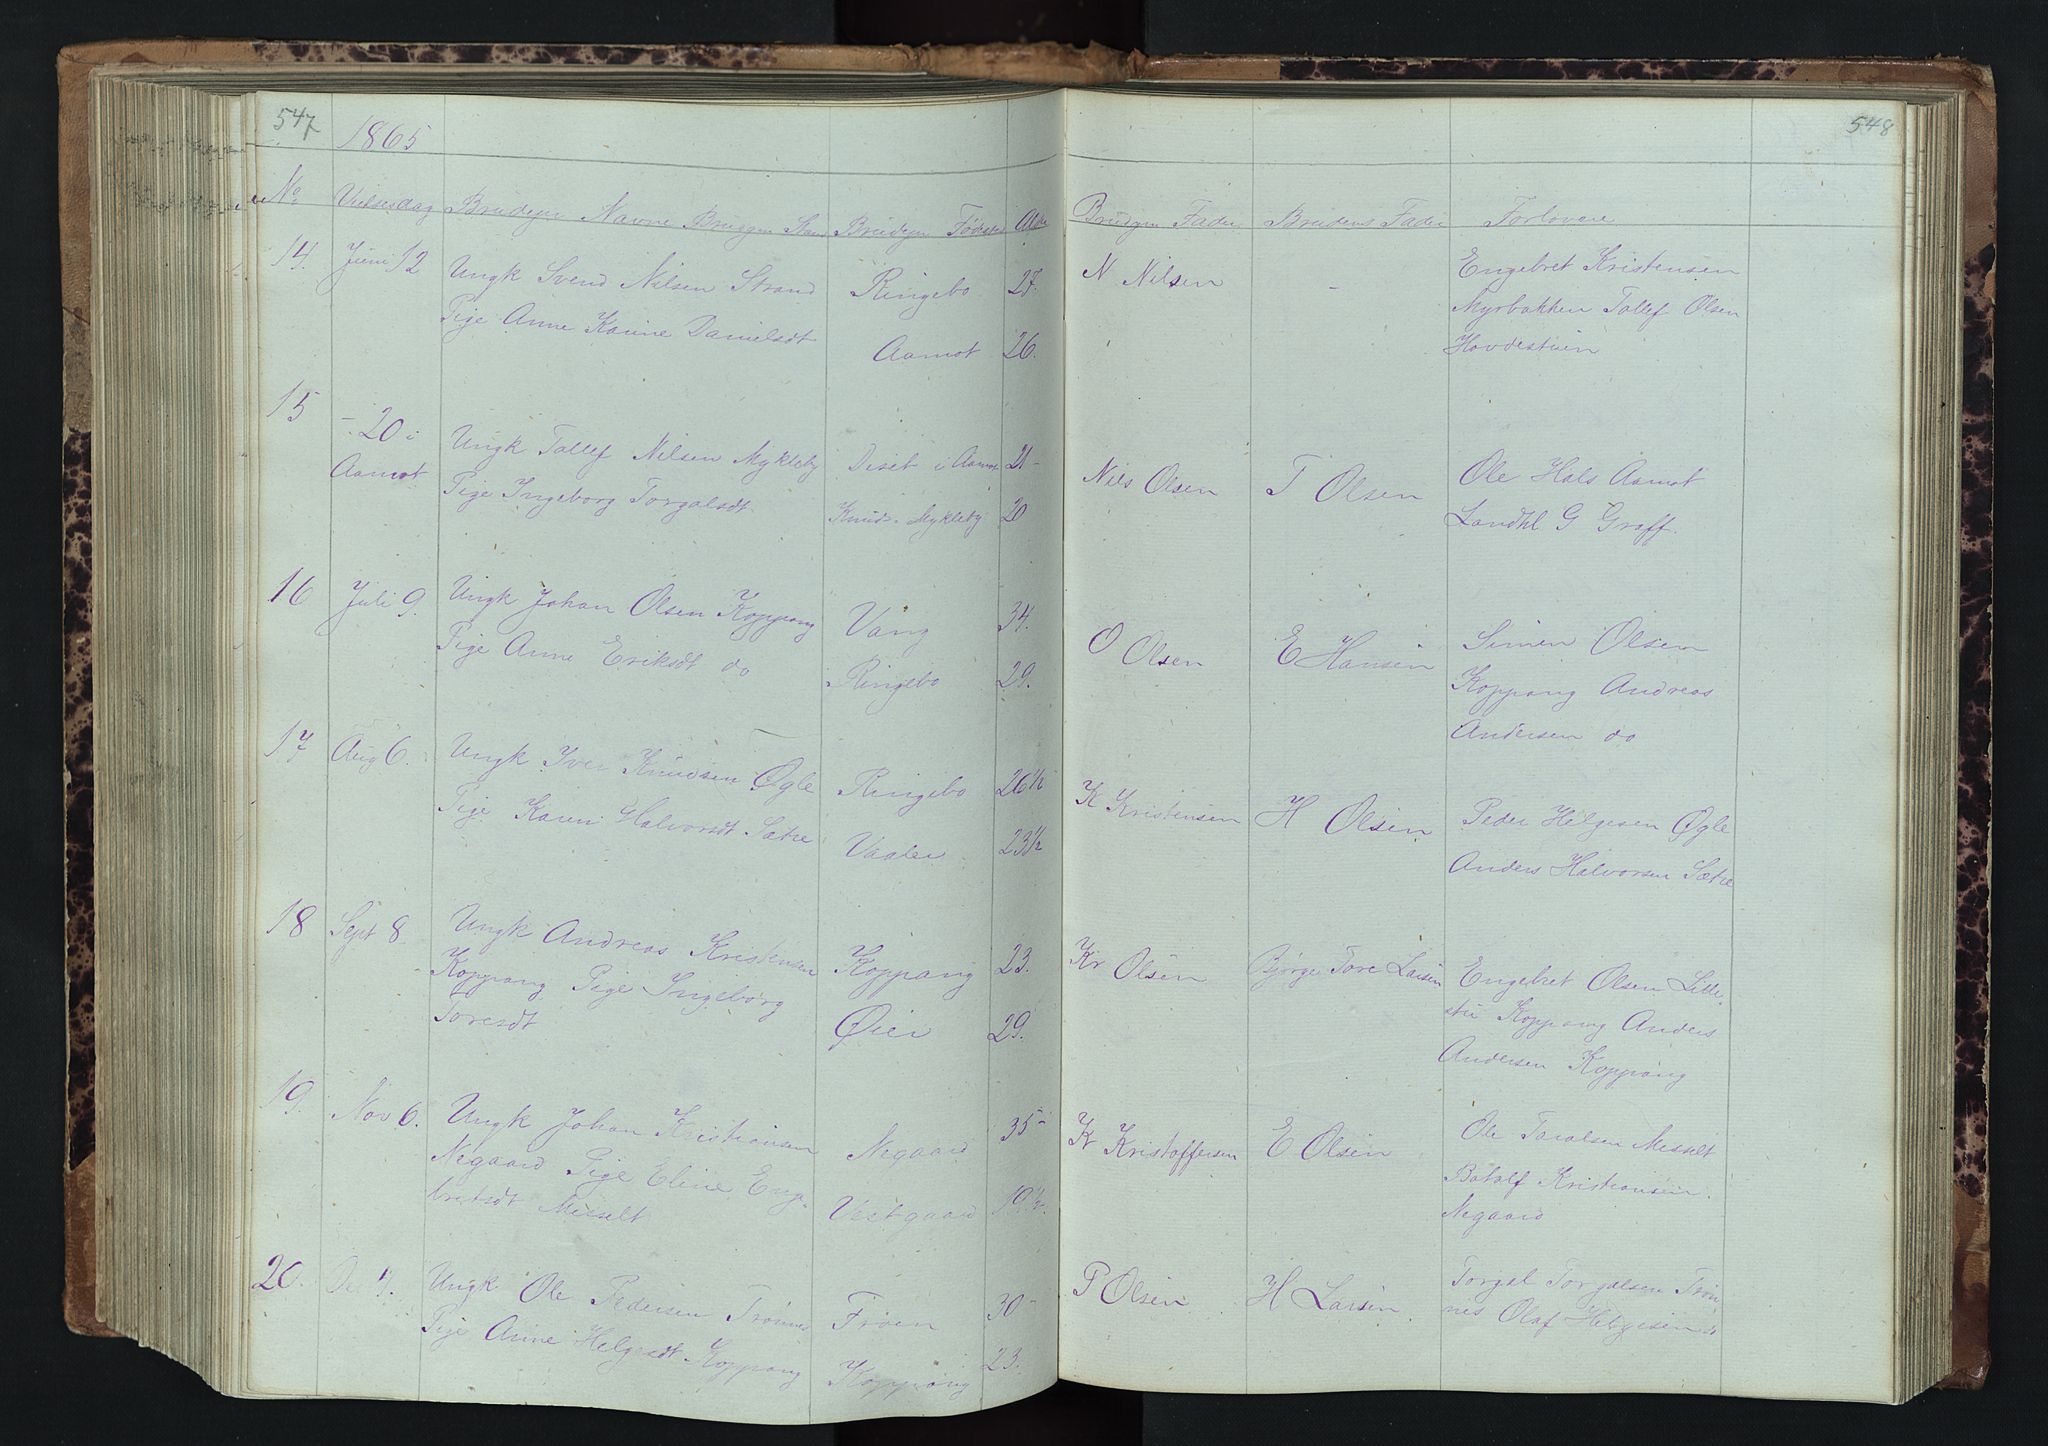 547
1865
No Vielsesdag Brudepr Navne Brudgm Brudepr Fødested Alder
14. Juni 12 Ungk Svend Nilsen Strand Ringebo 27.
Pige Anne Karine Danielsdt Aamot 26.
15 - 20 i Ungk Tollef Nilsen Mykleby Diset i Aamot 21-
Aamot Pige Ingeborg Torgalsdt Knuds. Mykleby 20
16 Juli 9. Ungk Johan Olsen Koppang Vang 34.
Pige Anne Eriksdt do Ringebo 29.
17 Aug 6. Ungk Iver Knudsen Øgle Ringebo 26 1/2
Pige Karen Halvorsdt Sætre Vaaler 23 1/2
18 Sept 8 Ungk Andreas Kristensen Koppang 23.
Koppang Pige Ingeborg
Toresdt Øier 29.
19. Nov 6. Ungk Johan Kristiansen Negaard 35-
Negaard Pige Eline Enge-
bretsdt Messelt Vestgaard 19 1/2.
20. Ungk Ole Pedersen Trønnes Frøen 30-
Pige Anne Helgesdt Koppang Koppang 23.
548
Brudgm Fader Brudens Fader Forlovere
N Nilsen - Engebret Kristensen
Myrbakken Tollef Olsen
Hovdestuen
Nils Olsen T Olsen Ole Hals Aamot
Landhl G Graff.
O Olsen E Hansen Simen Olsen
Koppang Andreas
Andersen do
K Kristensen H Olsen Peder Helgesen Øgle
Anders Halvorsen Sætre
Kr Olsen Bjørge Tore Larsen Engebret Olsen Lille-
stu Koppang Anders
Andersen Koppang
Kr Kristoffersen E Olsen Ole Taralsen Messelt
Botolf Kristiansen
Negaard
P Olsen H Larsen Torgal Torgalsen Trøn-
nes Olaf Helgesen